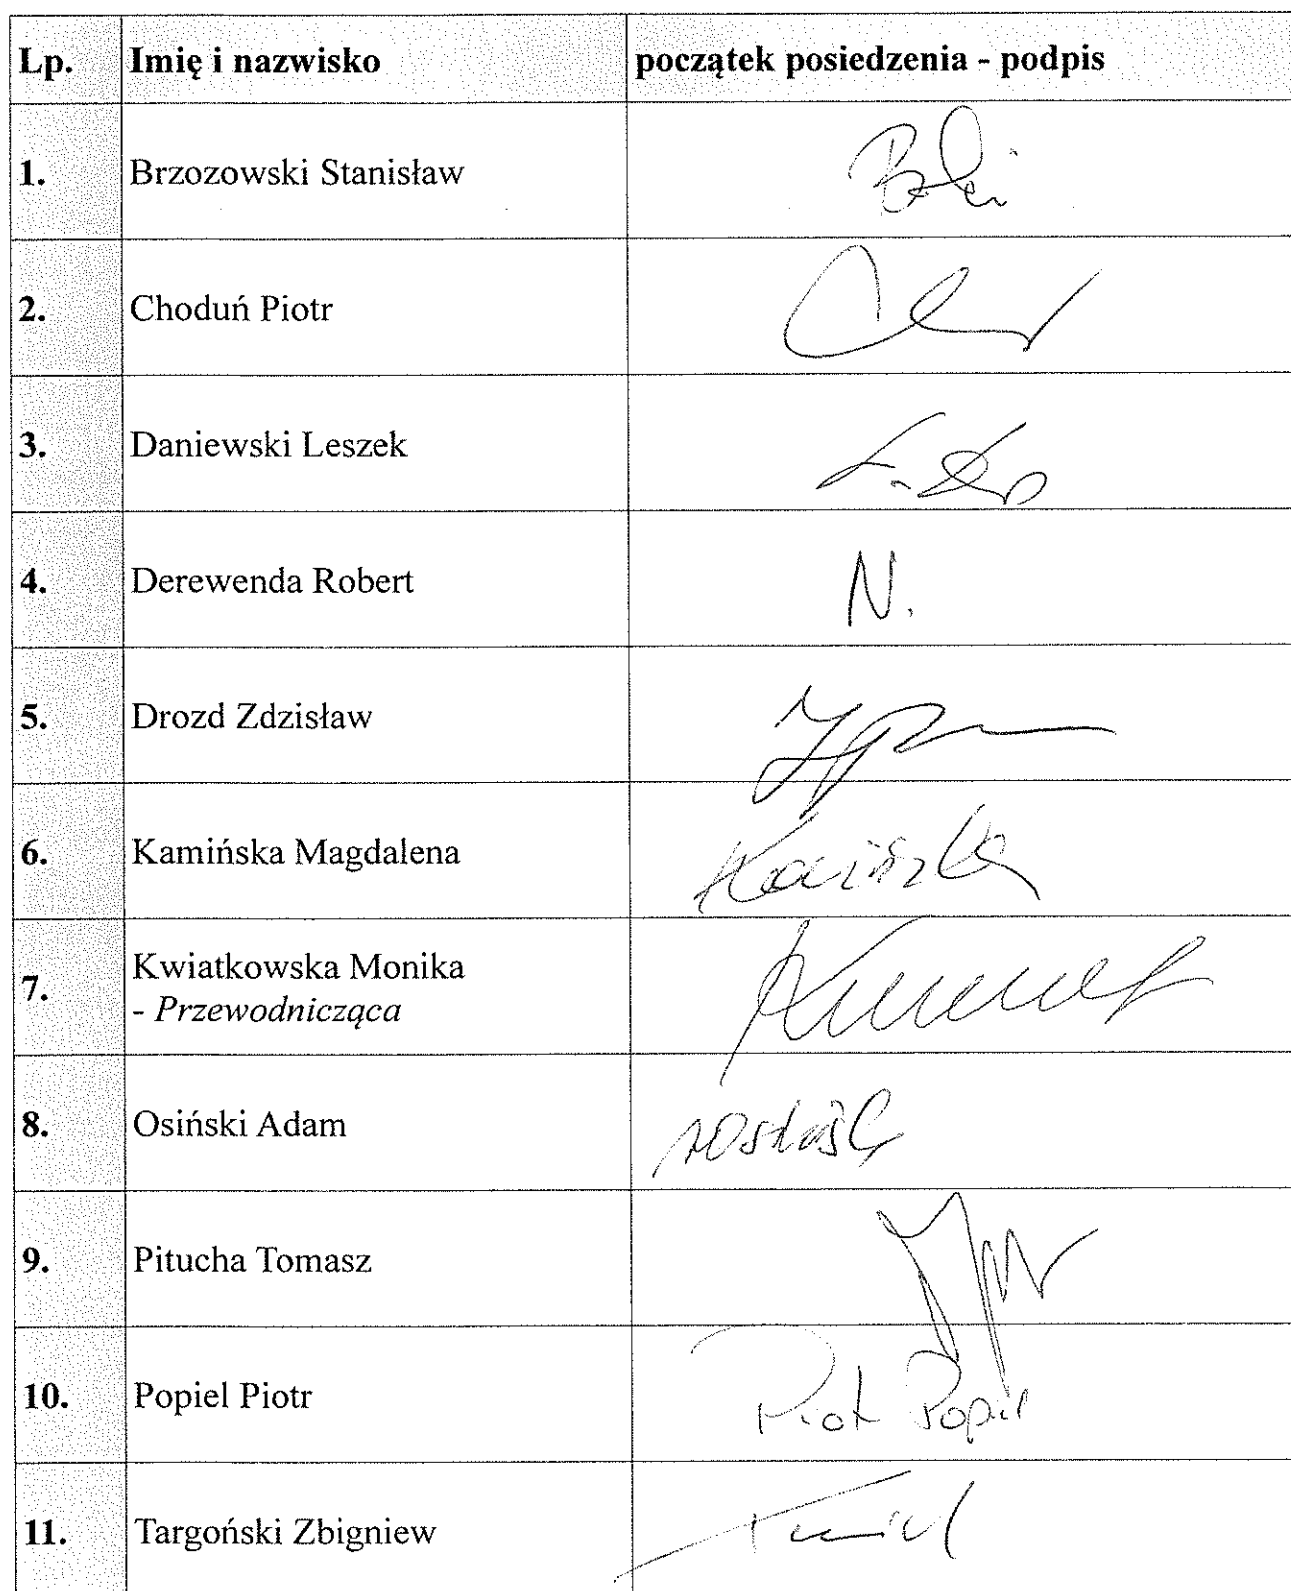 Lp. Imię i nazwisko początek posiedzenia - podpis
1. Brzozowski Stanisław
2. Choduń Piotr
3. Daniewski Leszek
4. Derewenda Robert N.
5. Drozd Zdzisław
6. Kamińska Magdalena
7. Kwiatkowska Monika
- Przewodnicząca
8. Osiński Adam
9. Pitucha Tomasz
10. Popiel Piotr Piotr Popiel
11. Targoński Zbigniew